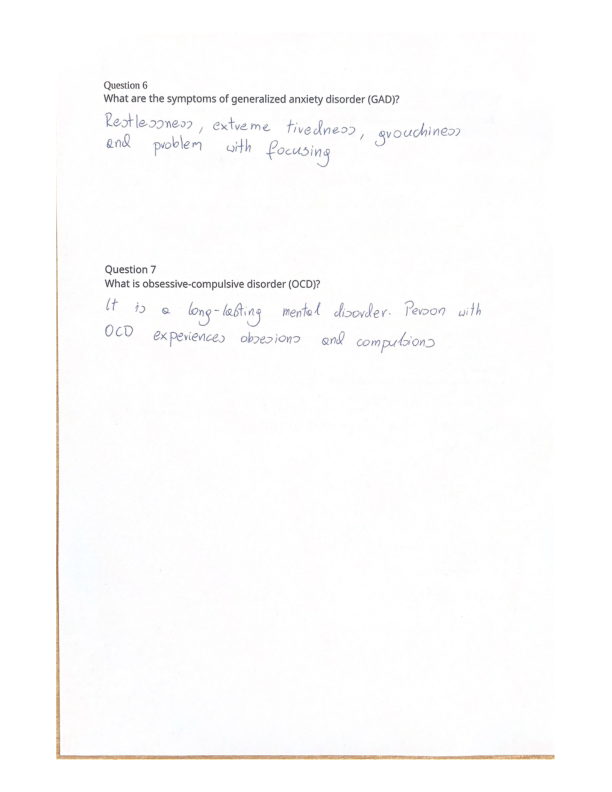 Question 6
What are the symptoms of generalized anxiety disorder (GAD)?
Restlessness, extreme tiredness, grouchiness
and problem with focusing
Question 7
What is obsessive-compulsive disorder (OCD)?
It is a long-lasting mental disorder. Person with
OCD experiences obsesions and compulsions